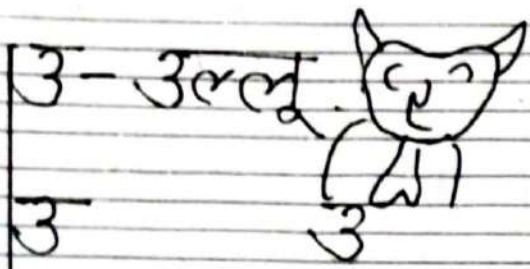 उ - उल्लू
उ उ